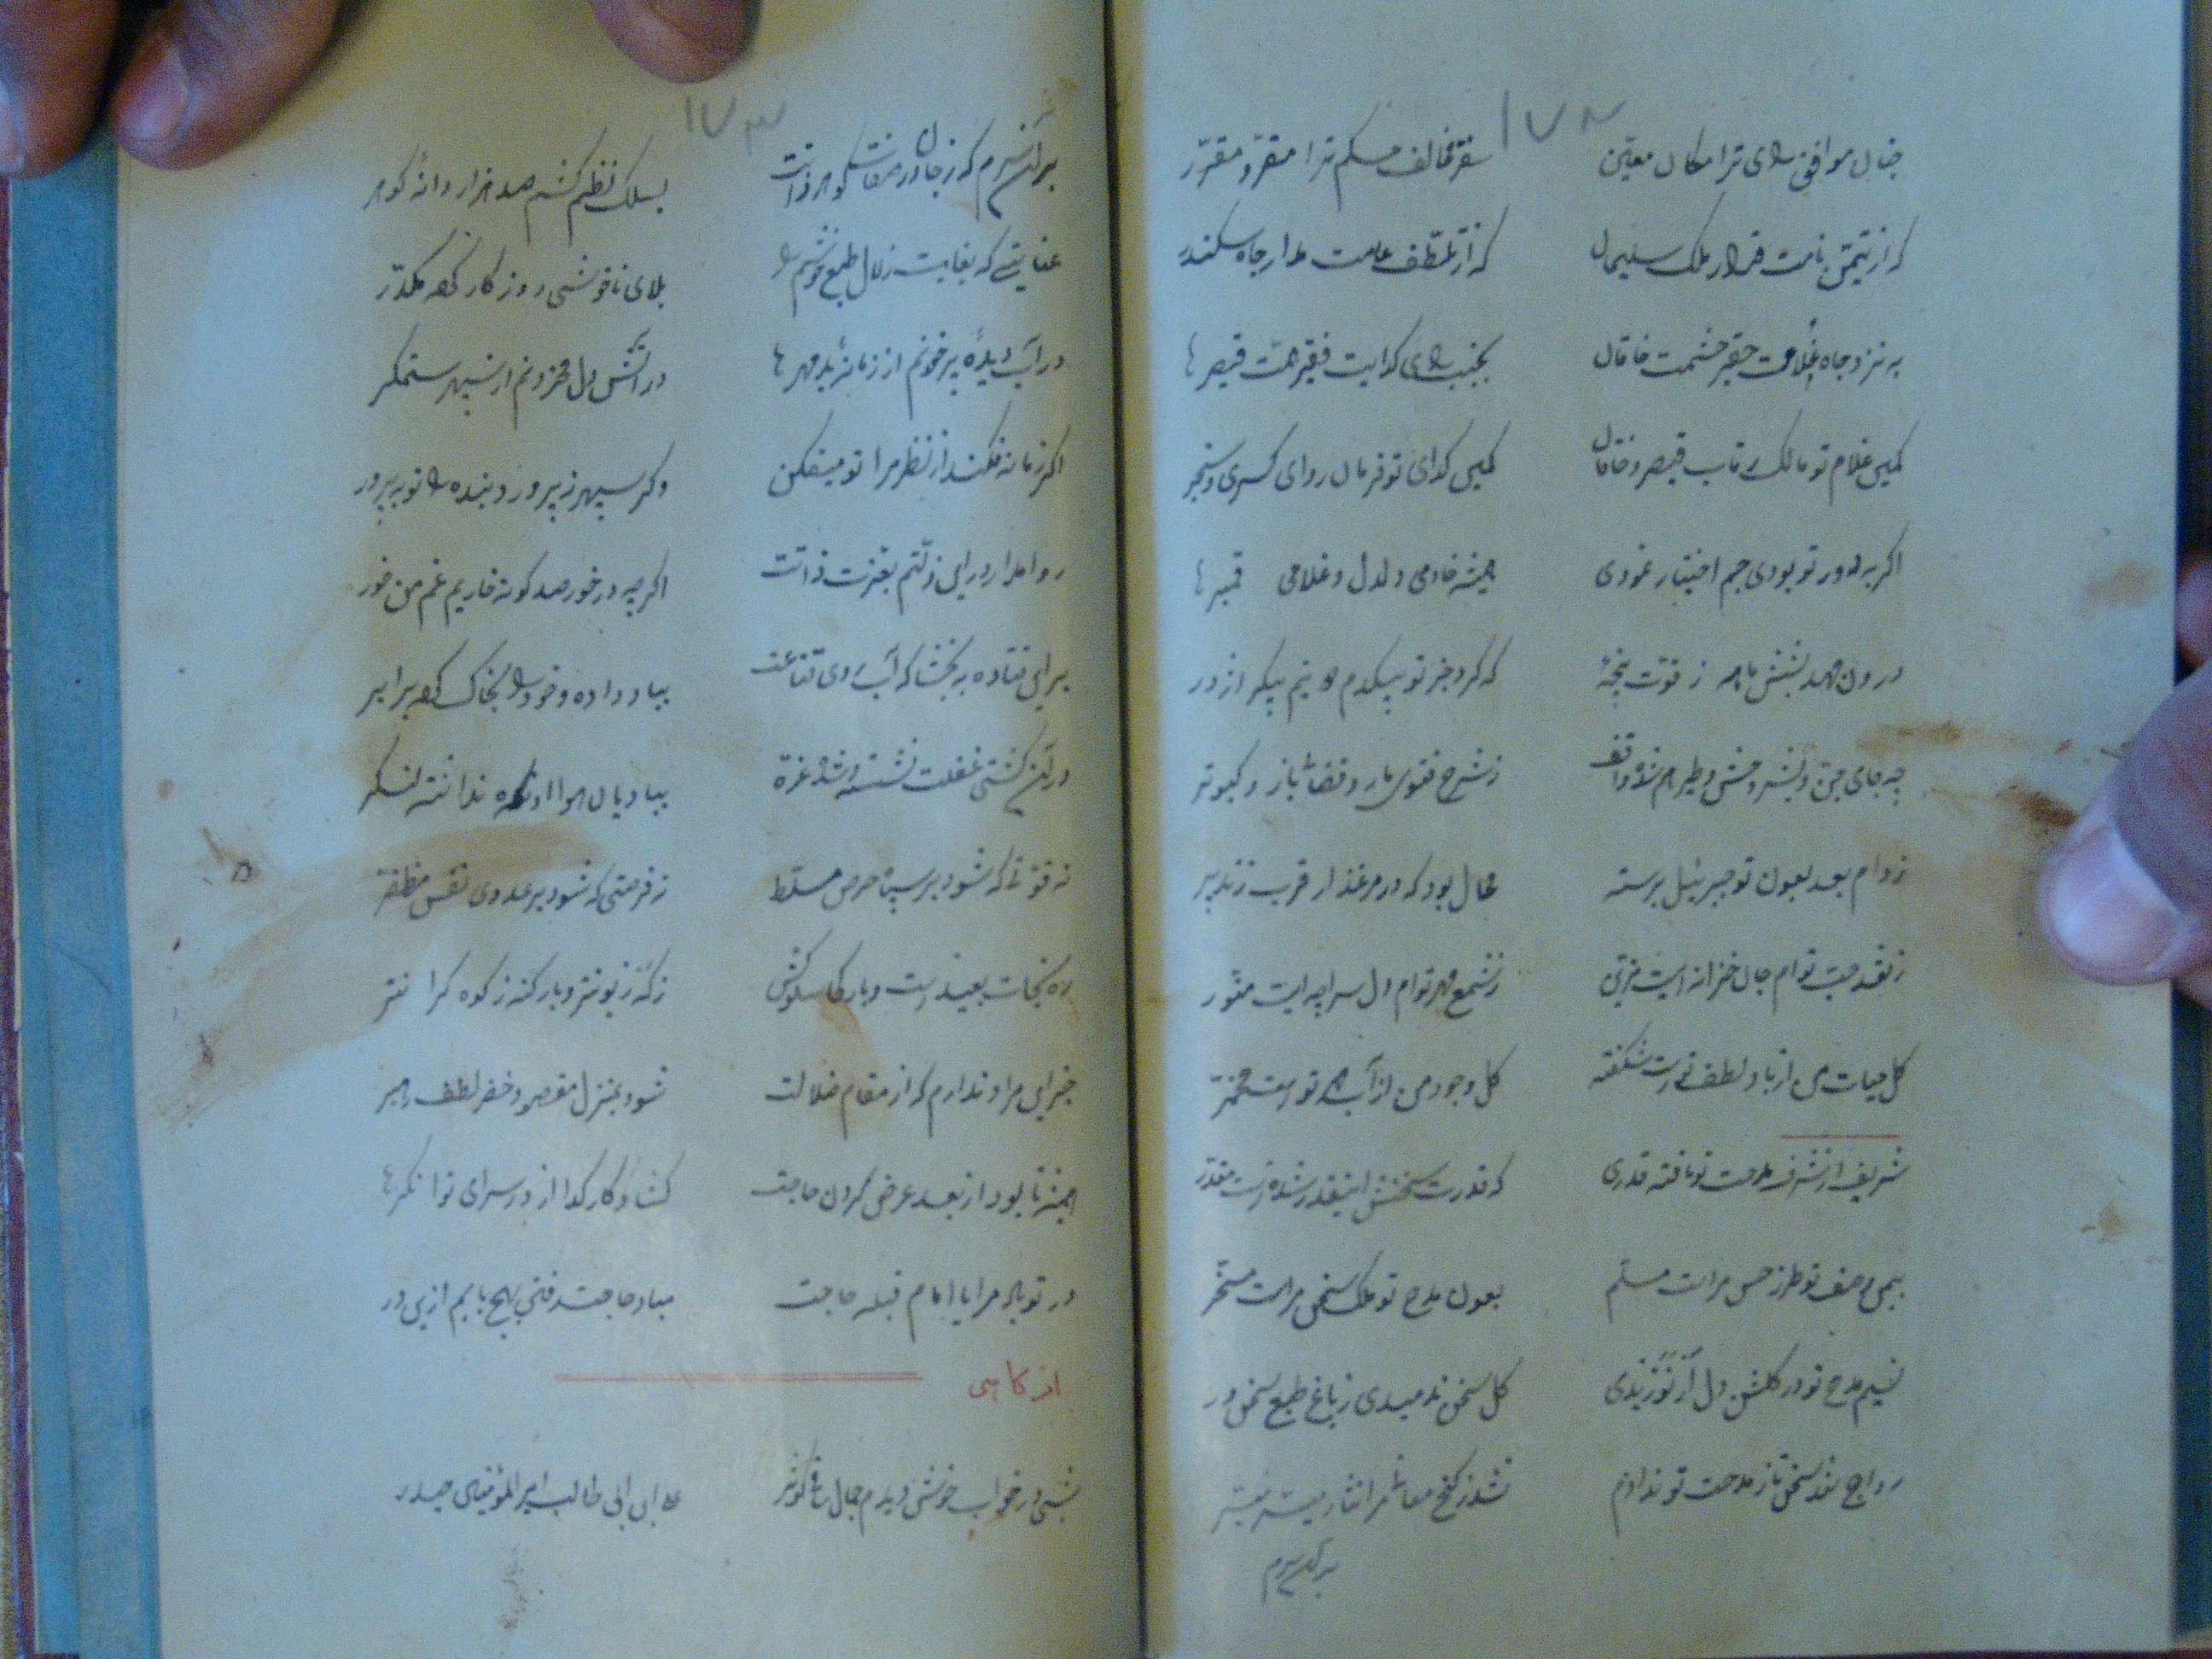 ۱۷۲
جنان موافق رای ترا مکان معین سقر مخالف حکم ترا مقر و مقرر
که از تیمن نامت قرار ملک سلیمان که از تلطف عامت مدار جاه سکندر
به نزد جاه غلامت حقیر حشمت خاقان بجنب رای گدایت فقیر همت قیصر
کمین غلام تو مالک رقاب قیصر و خاقان کمین گدای تو فرمان روای کسری و سنجر
اگر بدور تو بودی جم اختیار نمودی همیشه خادمی دلدل و غلامی قنبر
درون مهد بشش ماه ز قوت پنجه که کرد جز تو بیکدم دو نیم پیکر اژدر
چه جای جن و بشر وحش و طیر هم شده واقف ز شرح فتوی مار و قضاء باز و کبوتر
ز دام بعد بعون تو جبرئیل برسته محال بود که در مرغزار قرب زند پر
ز نقد حب توام جان خزانه ایست مزین ز شمع مهر توام دل سراچه ایست منور
گل حیات من از باد لطف تست شکفته گل وجود من از آب مهر تست مخمر
شریف از شرف مدحت تو یافته قدری که قدرت سخنش اینقدر شده است مقدر
بیمن وصف تو طرز حسن مراست مسلم بعون مدح تو ملک سخن مراست مسخر
نسیم مدح تو در گلشن دل ار نوزیدی گل سخن ندمیدی ز باغ طبع سخن ور
رواج نقد سخن تا ز مدحت تو ندادم نشد ز گنج معانی مرا نثار میسر
بر آن سرم
۱۷۳
بر آن سرم که ز جان در صفات گوهر ذاتت بسلک نظم کشم صد هزار دانه گوهر
عنایتی که بغایت زلال طبع خوشم را بلای ناخوشی روزگار کرده مکدر
در آب دیده پر خونم از زمانه بد مهر در آتش دل محزونم از سپهر ستمگر
اگر زمانه فکند از نظر مرا تو میفکن وگر سپهر نپرورد بنده را تو بپرور
روا مدار در این ذلتم بعزت ذاتت اگر چه در خور صد گونه خاریم غم من خور
بر این فتاده ببخشا که آب روی قناعت بباد داده و خود را بخاک کرده برابر
در این کشتی غفلت نشسته و شده غره ببادبان هوا و نگاه نداشته لنگر
نه قوتی که شود بر سپاه حرص مسلط نه فرصتی که شود بر عدوی نفس مظفر
ره نجات بعید است و بار کاهلکوش ز که زبونتر و بار گنه ز کوه گرانتر
جز این مراد ندارم که از مقام ضلالت شود بمنزل مقصود خضر لطف رهبر
همیشه تا بود از بعد عرض کردن حاجت گشاد کار گدا از در سرای توانگر
در تو باد مرا یا امام قبله حاجت مباد حاجت رفتن بهیچ بابم ازین در
از کاهی
شبی در خواب خوش دیدم جمال ساقی کوثر علی ابن ابی طالب امیر المؤمنین حیدر